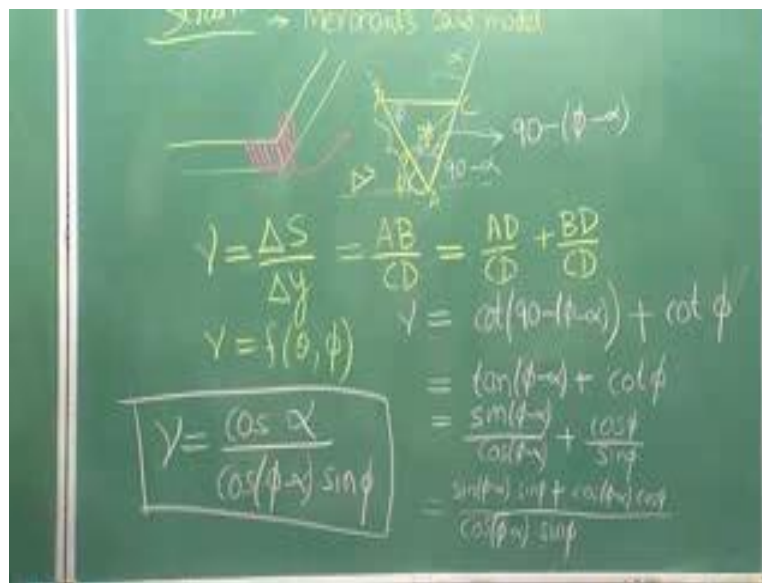 Strain → Merchant's card model
90-(ϕ-α)
90-α
A
γ = ΔS/Δy = AB/CD = AD/CD + BD/CD
γ = f(θ, ϕ)
γ = cot(90-(ϕ-α)) + cot ϕ
= tan(ϕ-α) + cot ϕ
= sin(ϕ-α)/cos(ϕ-α) + cosϕ/sinϕ
= sin(ϕ-α) sinϕ + cos(ϕ-α) cosϕ / cos(ϕ-α) sinϕ
γ = cos α / cos(ϕ-α) sinϕ